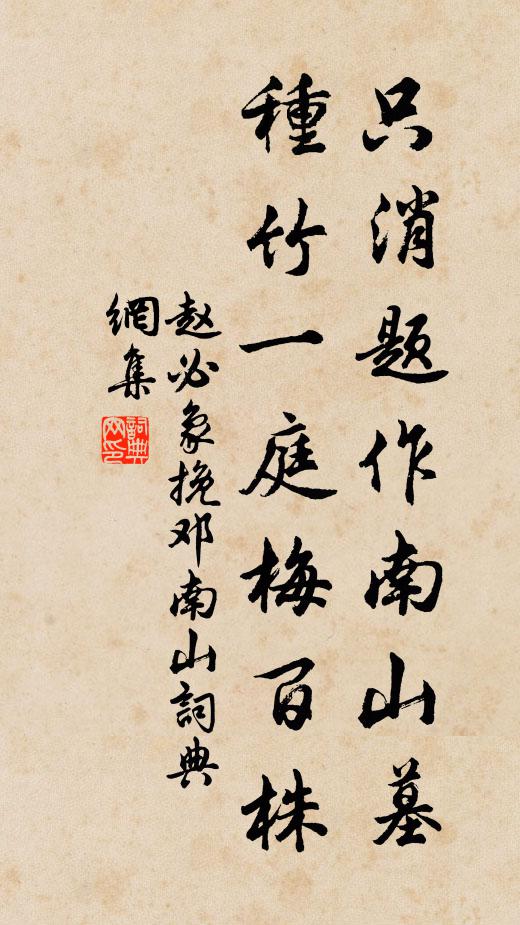 只消题作南山墓
種竹一庭梅百株
赵必象挽邓南山詞典
網集
詞典
网印